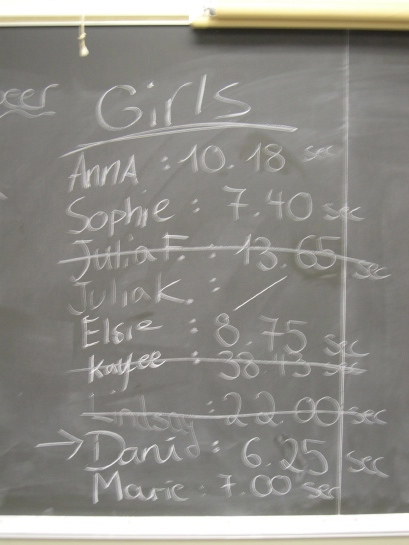 Girls
Anna : 10.18 sec
Sophie : 7.40 sec
Julia F. : 13.65 sec
Julia K. : /
Elsie : 8.75 sec
38.43 sec
Lindsay : 22.00 sec
→ David : 6.25 sec
Marie : 7.00 sec